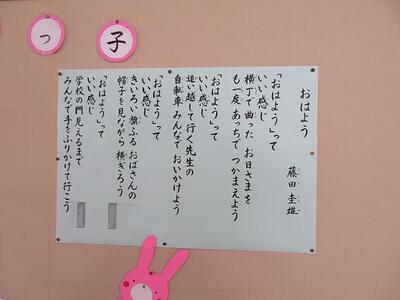 っ
子
おはよう
藤田 圭雄
「おはよう」って
いい感じ
横丁で曲った お日さまを
も一度 あっちで つかまえよう
「おはよう」って
いい感じ
追い越して行く先生の
自転車 みんなで おいかけよう
「おはよう」って
いい感じ
きいろい旗ふる おばさんの
帽子を見ながら 横ぎろう
「おはよう」って
いい感じ
学校の門見えるまで
みんなで手をふりかけて行こう